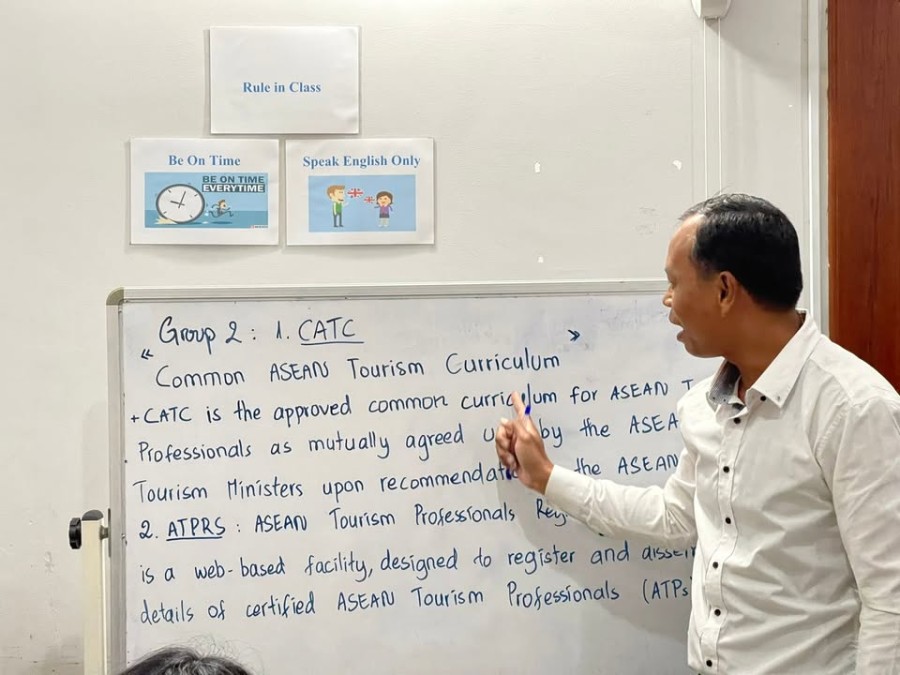 Rule in Class
Be On Time
BE ON TIME
EVERYTIME
Speak English Only
Group 2 : 1. CATC
" Common ASEAN Tourism Curriculum "
+ CATC is the approved common curriculum for ASEAN
Professionals as mutually agreed by the
Tourism Ministers upon the ASEAN
2. ATPRS : ASEAN Tourism Professionals
is a web-based facility, designed to register and
details of certified ASEAN Tourism Professionals (ATPs